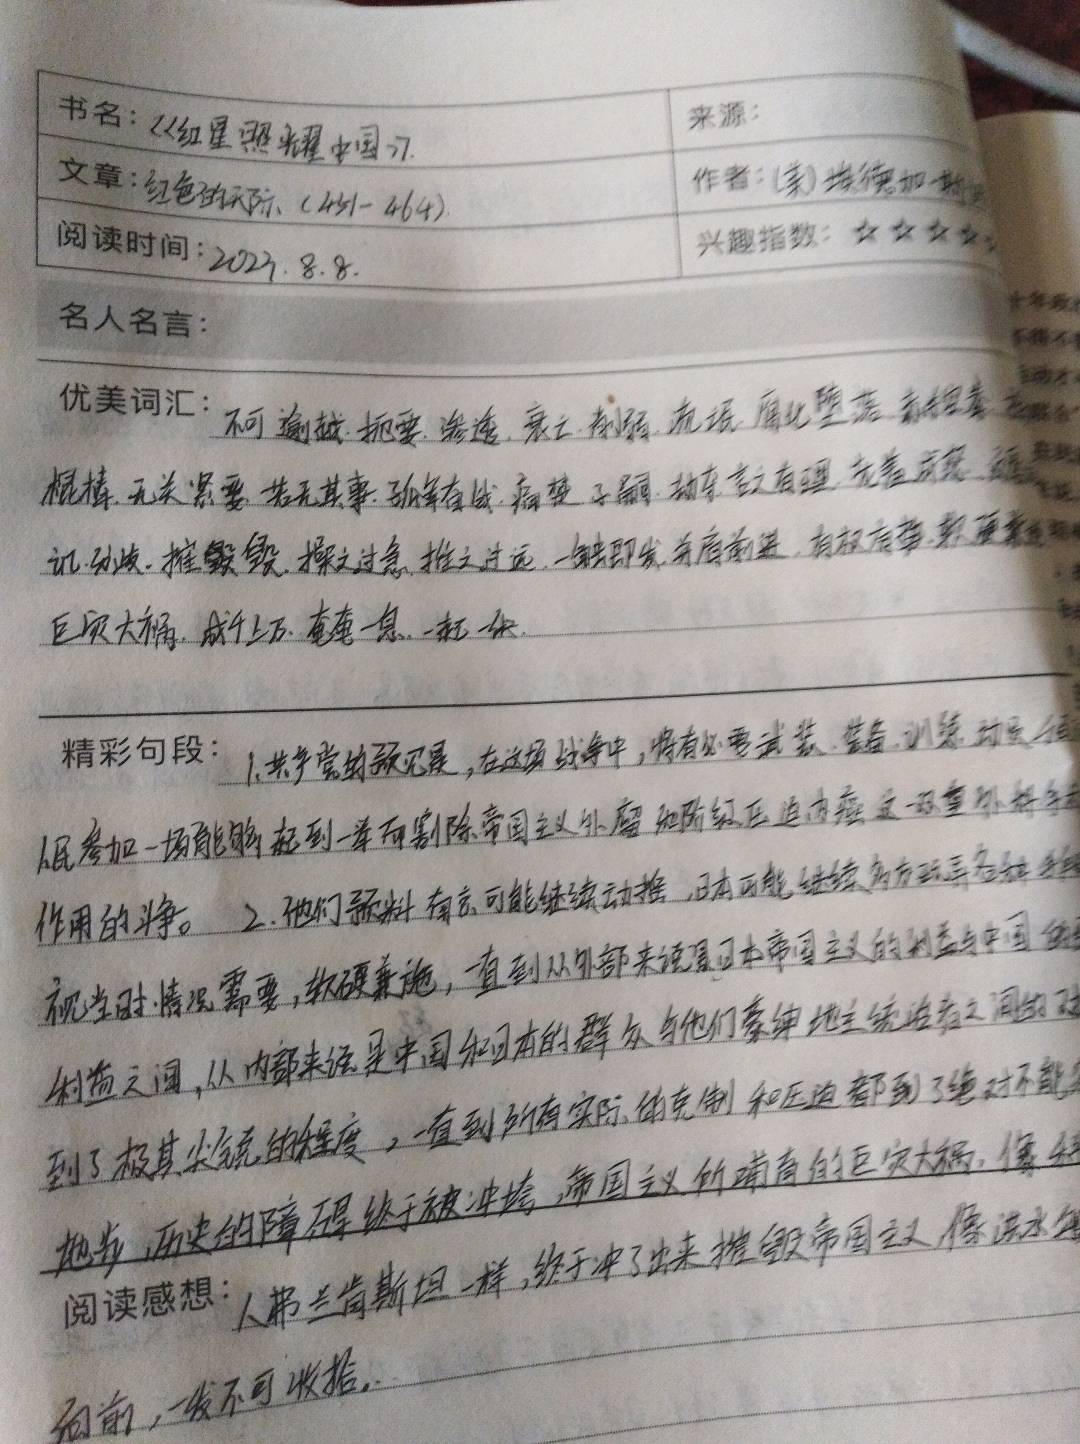 书名：《红星照耀中国》
来源：
文章：红色的天际（451-464）
作者：（美）埃德加·斯
阅读时间：2027.8.8.
兴趣指数：☆☆☆☆
名人名言：
优美词汇：不可逾越.扼要.渗透.衰亡.削弱.抗垠.腐化堕落
棍棒.无关紧要.若无其事.子嗣
摧毁.操之过急.推之过远.一触即发.并肩前进
巨灾大祸.成千上万.奄奄一息.一起一伏.
精彩句段：1.共产党的预见是，在这场战争中，将有必要武装.装备.训练.动员
人民参加一场能够起到一举而割除帝国主义外瘤和阶级压迫内癌这一双重外科手术
作用的斗争。 2.他们预料南京可能继续动摇，日本可能继续多方玩弄各种手段
视当时情况需要，软硬兼施，一直到从外部来说是日本帝国主义的利益与中国
利益之间，从内部来说是中国和日本的群众与他们豪绅地主统治者之间的对
到了极其尖锐的程度，一直到所有实际的克制和压迫都到了绝对不能
地步，历史的障碍终于被冲垮，帝国主义所哺育的巨灾大祸，像
阅读感想：人弗兰肯斯坦一样，终于冲了出来摧毁帝国主义，像洪水
向前，一发不可收拾。